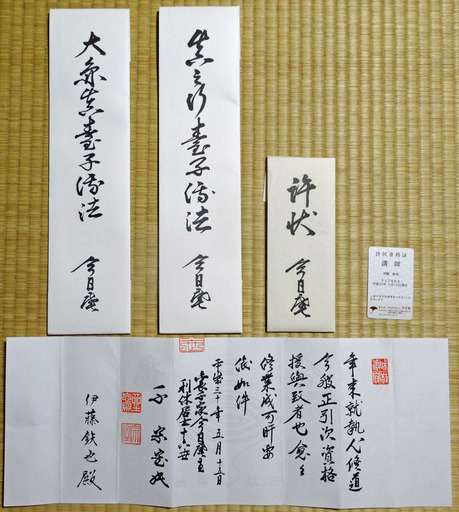 許状資格証
講師
許状
今日庵
真之行臺子傳法
今日庵
真臺子傳法
今日庵
年来就執心修道
今般正引次資格
授與致者也愈々
修業成可肝要
依如件
平成三十年五月十五日
裏千家今日庵主
利休居士十六世
千宗室
伊藤鉄也殿